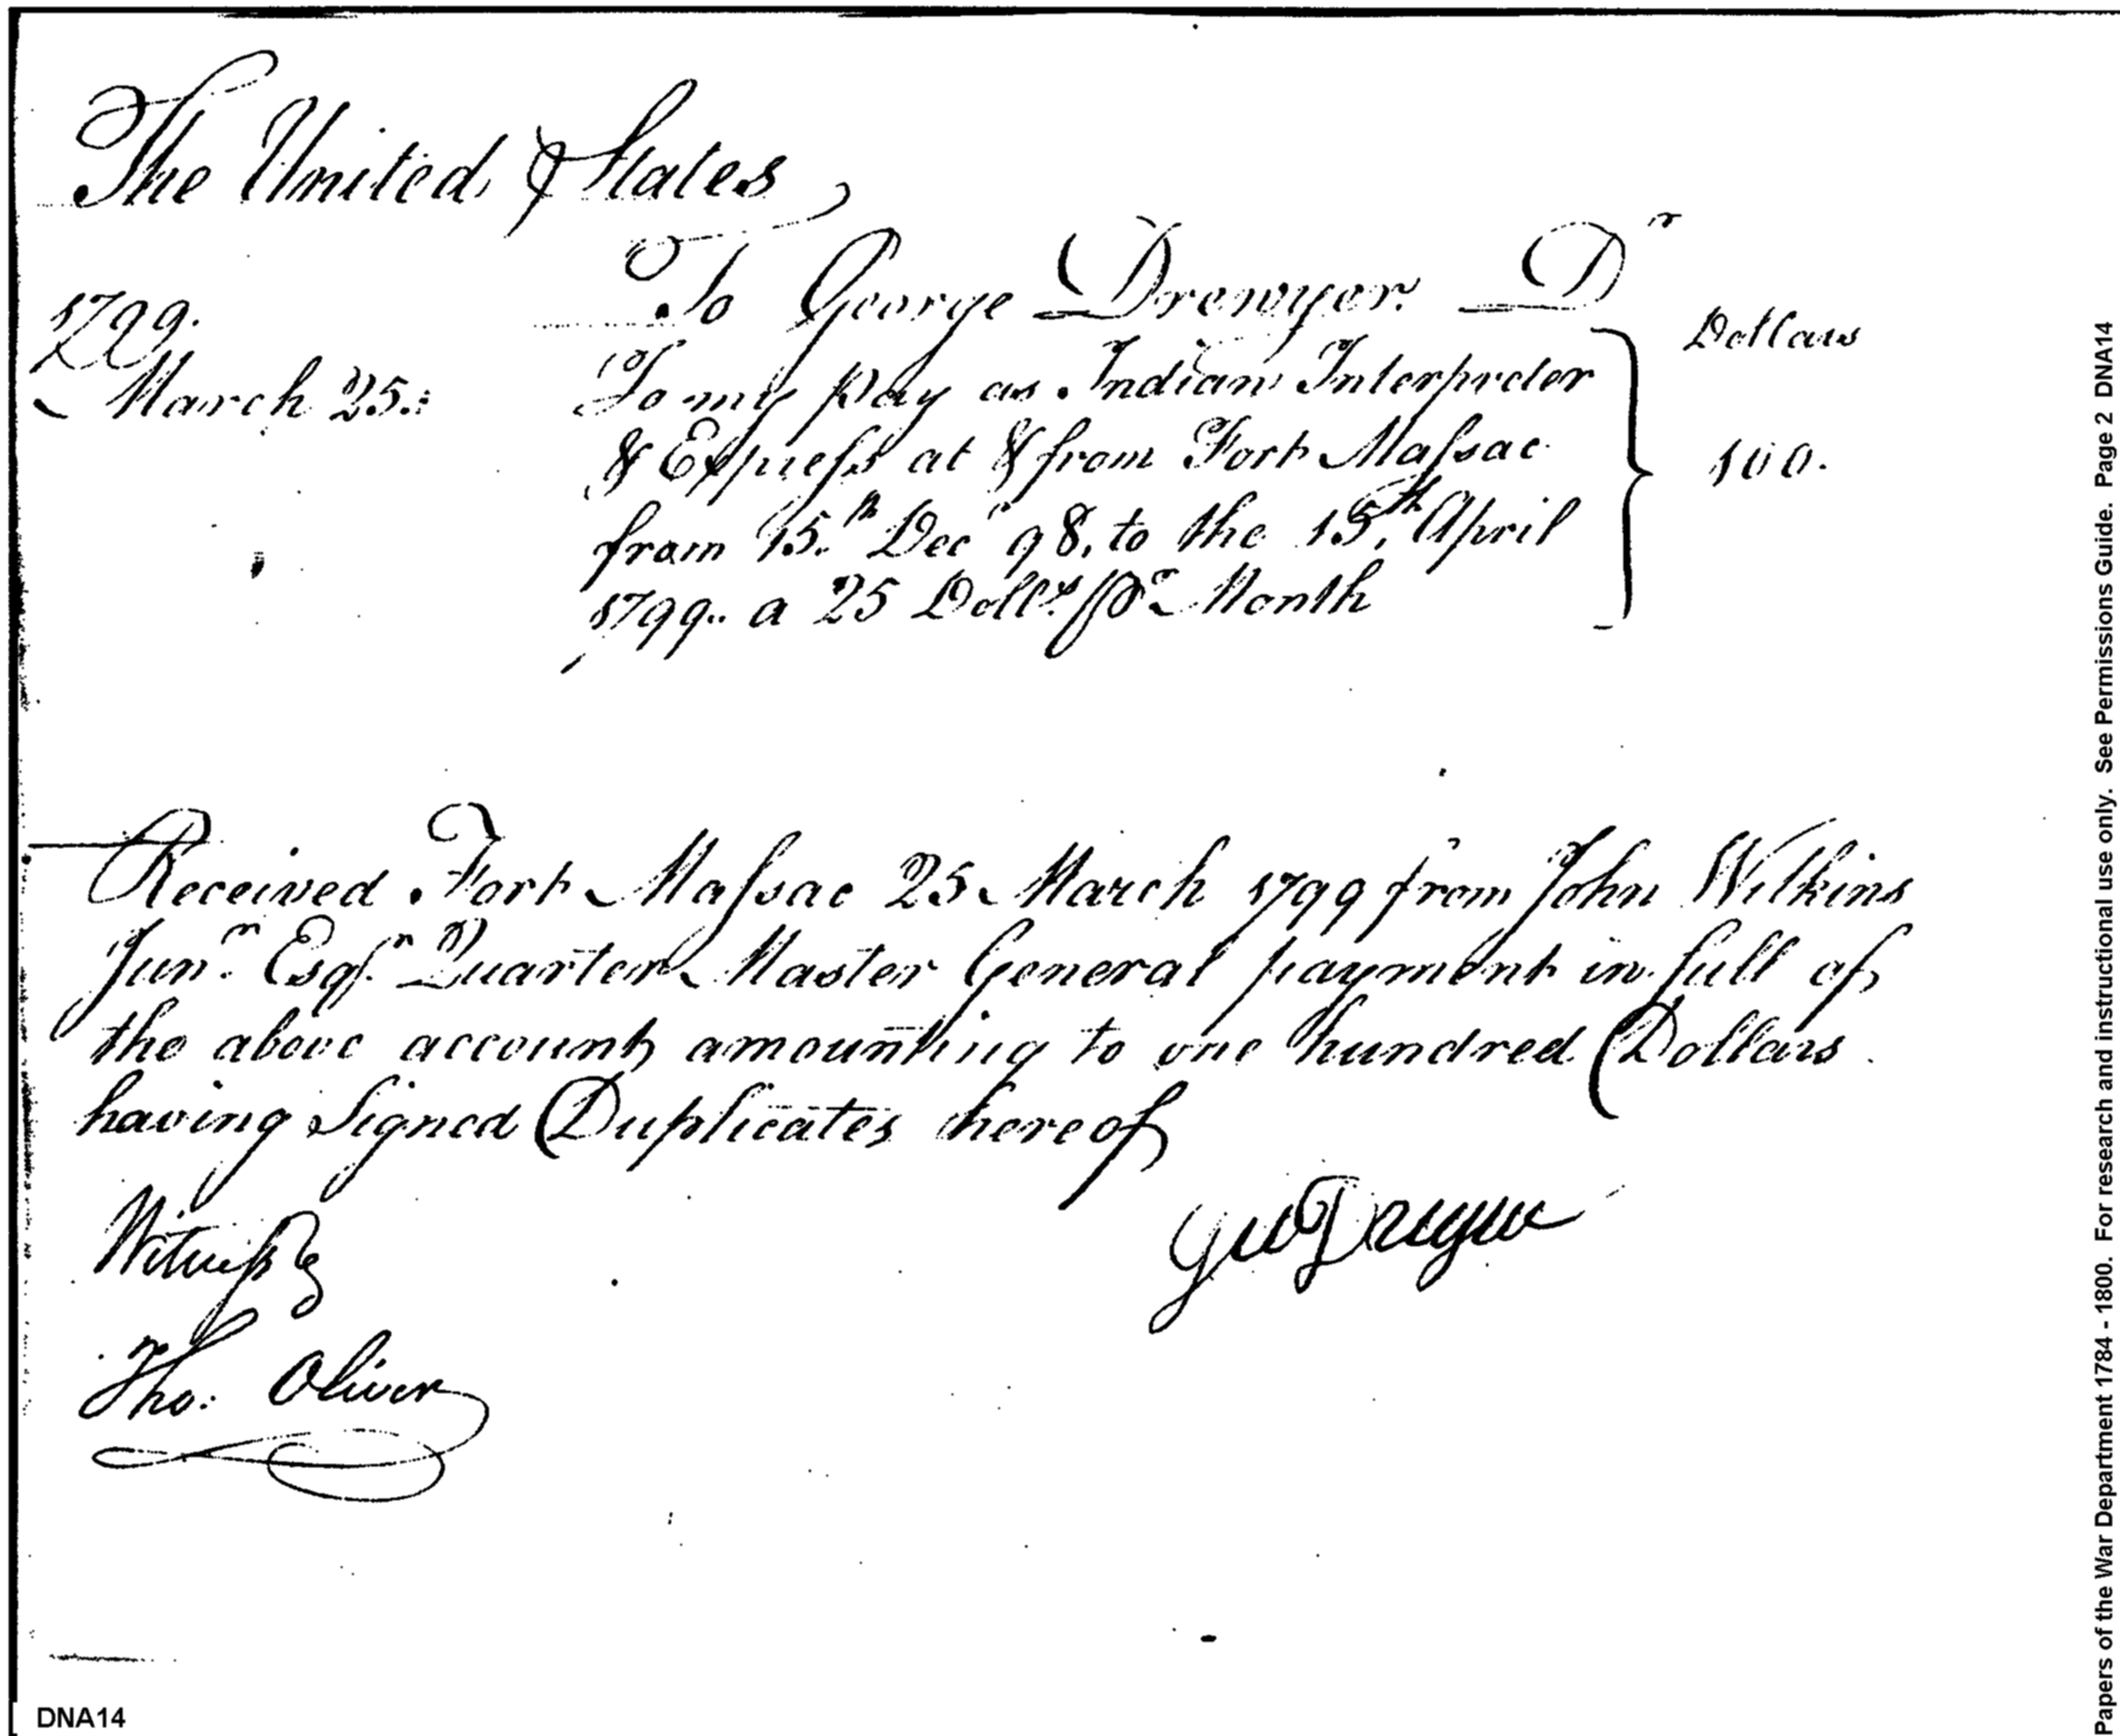 The United States
To George Drewyer. Dr
1799. Dollars
March 25.: To my pay as Indian Interpreter
& Express at & from Fort Massac 100.
from 15.th Decr 98, to the 15.th April
1799.. a 25 Dolls. pr Month
Received Fort Massac 25 March 1799 from John Wilkins
Junr. Esqr. Quarter Master General payment in full of
the above account amounting to one hundred Dollars
having signed Duplicates hereof
Witness
Tho: Oliver
DNA14
Papers of the War Department 1784 - 1800. For research and instructional use only. See Permissions Guide. Page 2 DNA14